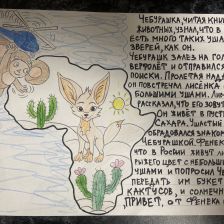 ЧЕБУРАШКА, ЧИТАЯ КНИ
ЖИВОТНЫХ, УЗНАЛ, ЧТО В
ЕСТЬ МНОГО ТАКИХ УША
ЗВЕРЕЙ, КАК ОН.
ЧЕБУРАШК ЗАЛЕЗ НА ГОЛ
ВЕРТОЛЁТ И ОТПРАВИЛСЯ
ПОИСКИ. ПРОЛЕТАЯ НАД
ОН ПОВСТРЕЧАЛ ЛИСЁНКА
БОЛЬШИМИ УШАМИ.
РАССКАЗАЛ, ЧТО ЕГО ЗОВУТ
ОН ЖИВЁТ В ПУСТ
САХАРА. УШАСТЫЙ
ОБРАДОВАЛСЯ ЗНАКОМ
ЧЕБУРАШКОЙ. ФЕНЕК
ЧТО В РОСИИ ЖИВУТ ЛИ
РЫЖЕГО ЦВЕТ С НЕБОЛЬШИ
УШАМИ И ПОПРОСИЛ ЧЕ
ПЕРЕДАТЬ ИМ БУКЕТ
КАКТУСОВ, И СОЛНЕЧН
ПРИВЕТ, ОТ ФЕНЕКА